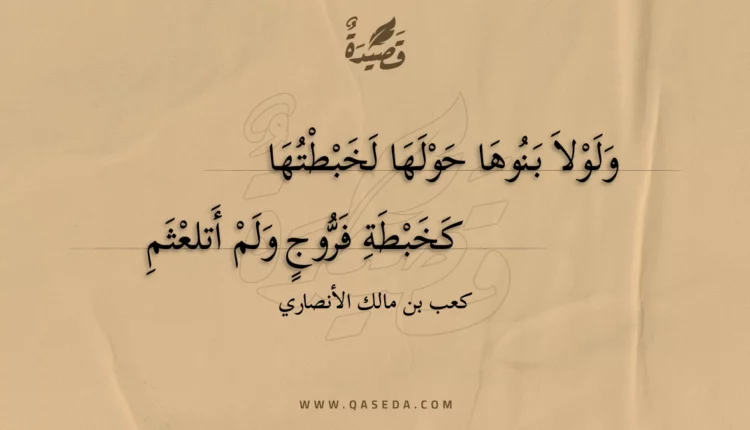 قَصِيدَةٌ
وَلَوْلاَ بَنُوهَا حَوْلَهَا لَخَبْطْتُهَا
كَخَبْطَةِ فَرُّوجٍ وَلَمْ أَتلعْثَمِ
كعب بن مالك الأنصاري
WWW.QASEDA.COM